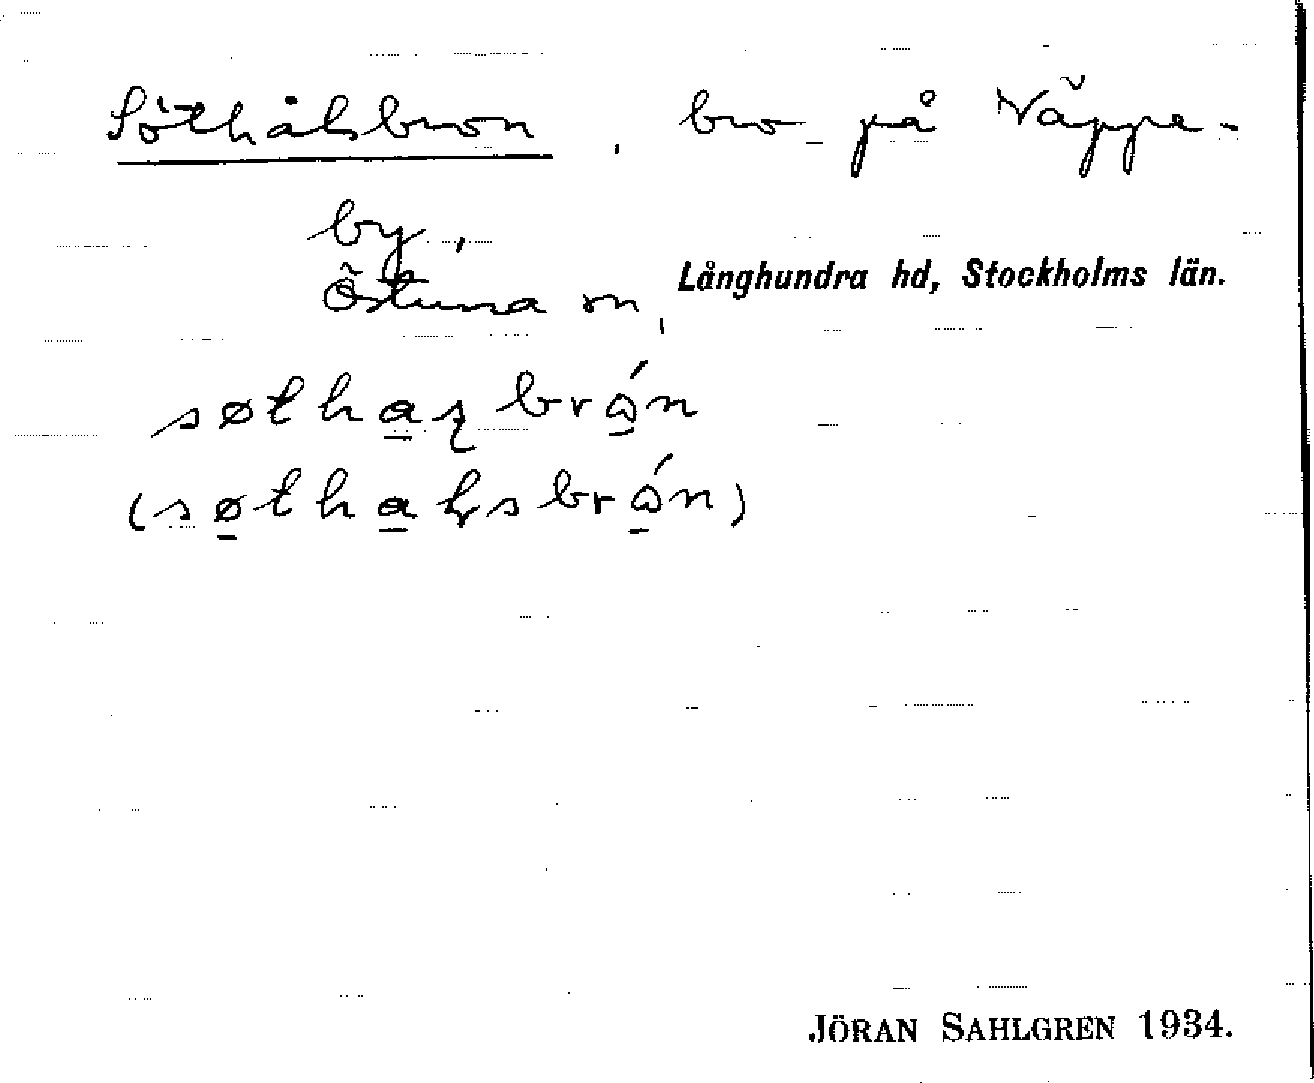 Söthålsbron, bro på Näppe-
by,
Östuna sn, Långhundra hd, Stockholms län.
søthaʂ brån
(søthaɽsbrån)
JÖRAN SAHLGREN 1934.